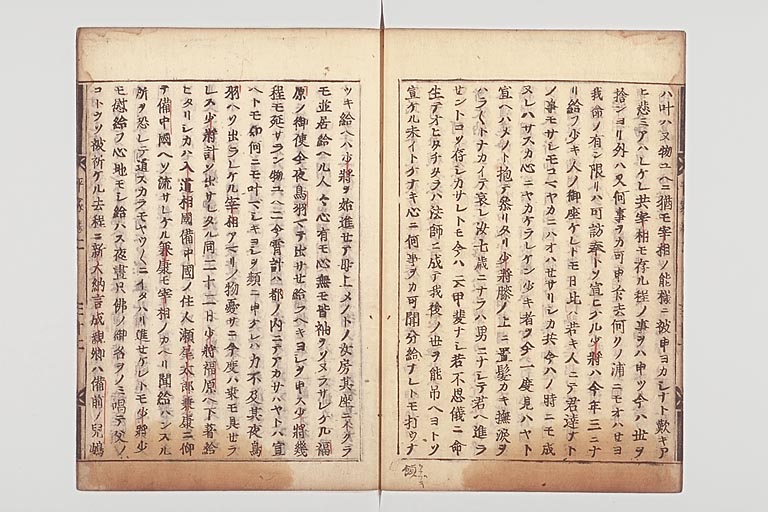 ハ叶ハヌ物ユヘニ猶モ宰相ノ能様ニ被申ヨカシナト歎キア
ヒ悲ミアハレケレ共宰相モ存ル程ノ事ヲハ申ツ今ハ世ヲ
捨ショリ外ハ又何事ヲカ可申ナレ去何クノ浦ニモオハセヨ
我命ノ有ン限リハ可訪奉トソ宣ヒケル少将ハ今年三ニナ
リ給フ少キ人ノ御座ケレトモ日比ハ若キ人ニテ君達ナト
ノ事モサシモコマヤカニハオハセサリシカ共今ハノ時ニモ成
ヌレハサスカ心ニヤカケラレケン少キ者ヲ今一度見ハヤト
宣ヘハメノト抱テ参リタリ少将膝ノ上ニ置髪カキ撫涙ヲ
ハラくトナカイテ哀レ汝七歳ニナラハ男ニナシテ君ヘ進ラ
サントコソ存シカサレトモ今ハ云甲斐ナシ若不思儀ニ命
生テオヒタチタラハ法師ニ成テ我後ノ世ヲ能弔ヘヨトソ
宣ケル未イトケナキ心ニ何事ヲカ可聞分給ナレトモ打ウナ
ツキ給ヘハ少将ヲ始進セテ母上メノトノ女房其座ニ不クラ
モ並居給ヘル人々心有モ心無モ皆袖ヲソヌラサレケル福
原ノ御使今夜鳥羽マテ出サセ給ラヘキヨシヲ申ス少将幾
程モ延サラン物ユヘニ今宵計ハ都ノ内ニテアカサハヤトハ宣
ヘトモ如何ニモ叶マシキヨシヲ頻ニ申ケレハ力不及其夜鳥
羽ヘソ出ラレケル宰相アマリノ物憂サニ今度ハ乗モ具セラ
レス少将計ソ出サレタル同二十二日少将福原ヘ下着給
ヒタリシカハ入道相國備中国ノ住人瀬尾太郎兼康ニ仰
テ備中國ヘソ流サレケル兼康モ宰相ノカヘリ聞給ハンスル
所ヲ恐レテ道スカラモヤウくニイタハリ進セケレトモ少将少
モ慰給フ心地モシ給ハス夜晝只佛ノ御名ヲノミ唱テ父ノ
コトヲソ被祈ケル去程ニ新大納言成親卿ハ備前ノ兒嶋